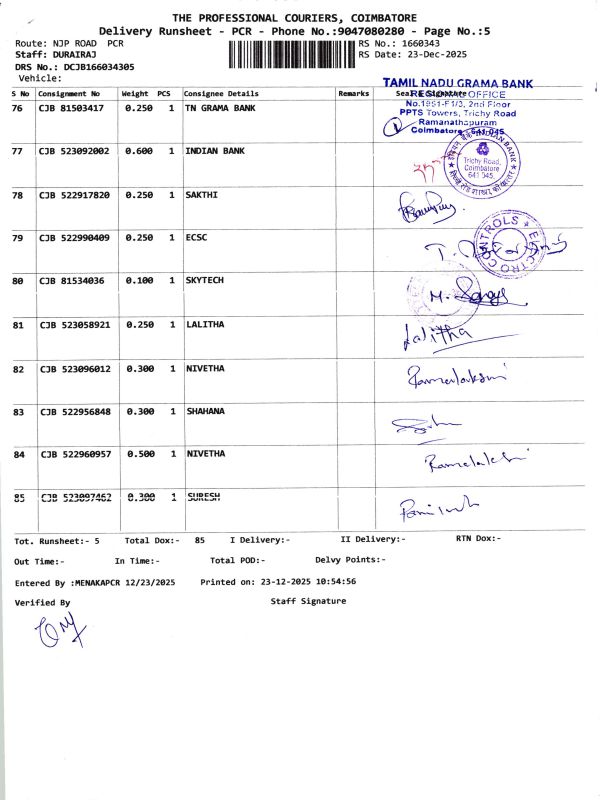 THE PROFESSIONAL COURIERS, COIMBATORE
Delivery Runsheet - PCR - Phone No.:9047080280 - Page No.:5
Route: NJP ROAD PCR
RS No.: 1660343
Staff: DURAIRAJ
RS Date: 23-Dec-2025
DRS No.: DCJB166034305
Vehicle:
TAMIL NADU GRAMA BANK
REGIONAL OFFICE
No.1951-F1/3, 2nd Floor
PPTS Towers, Trichy Road
Ramanathapuram
Coimbatore - 641 045
S No Consignment No Weight PCS Consignee Details Remarks Seal & Signature
76 CJB 81503417 0.250 1 TN GRAMA BANK
77 CJB 523092002 0.600 1 INDIAN BANK
INDIAN BANK
Trichy Road,
Coimbatore
641 045
78 CJB 522917820 0.250 1 SAKTHI
79 CJB 522990409 0.250 1 ECSC
ELECTRO CONTROLS
80 CJB 81534036 0.100 1 SKYTECH
81 CJB 523058921 0.250 1 LALITHA
Lalitha
82 CJB 523096012 0.300 1 NIVETHA
Ramalakshmi
83 CJB 522956848 0.300 1 SHAHANA
84 CJB 522960957 0.500 1 NIVETHA
85 CJB 523097462 0.300 1 SURESH
Tot. Runsheet:- 5 Total Dox:- 85 I Delivery:- II Delivery:- RTN Dox:-
Out Time:- In Time:- Total POD:- Delvy Points:-
Entered By :MENAKAPCR 12/23/2025 Printed on: 23-12-2025 10:54:56
Verified By Staff Signature